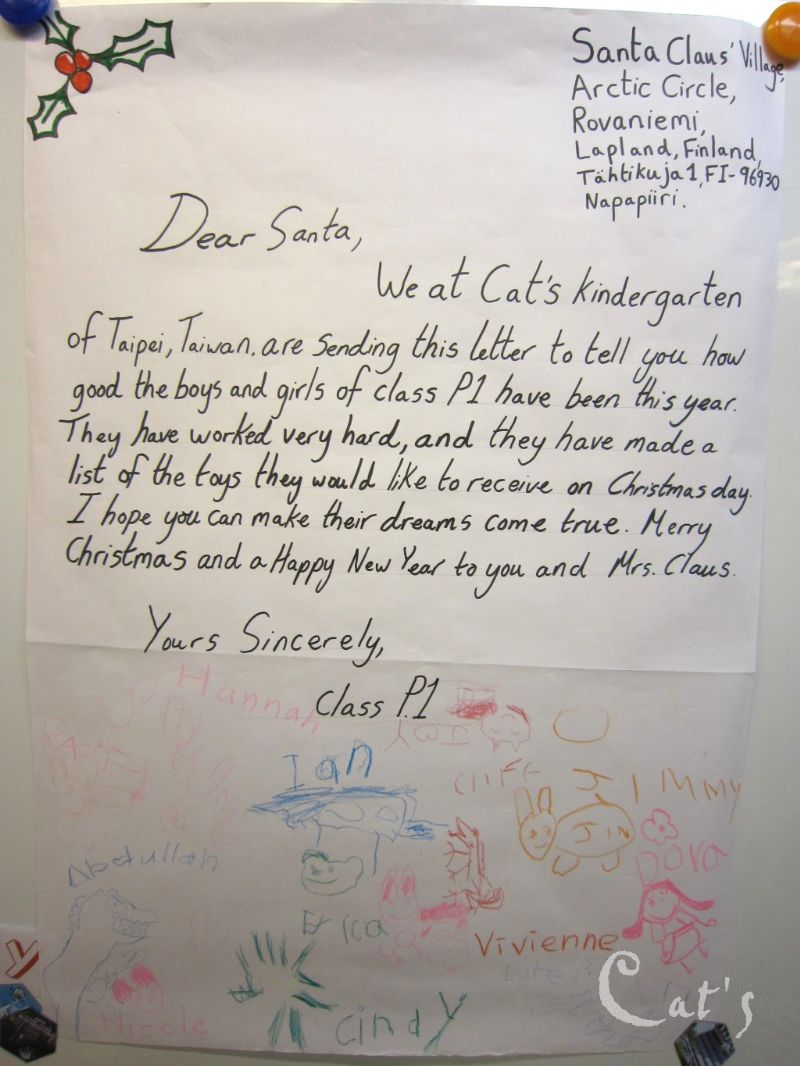 Santa Claus' Village,
Arctic Circle,
Rovaniemi,
Lapland, Finland,
Tähtikuja 1, FI-96930
Napapiiri.
Dear Santa,
We at Cat's kindergarten
of Taipei, Taiwan. are sending this letter to tell you how
good the boys and girls of class P1 have been this year.
They have worked very hard, and they have made a
list of the toys they would like to receive on Christmas day.
I hope you can make their dreams come true. Merry
Christmas and a Happy New Year to you and Mrs. Claus.
Yours Sincerely,
Class P.1
Hannah
Ian
Cliff
Jimmy
JIN
Dora
Abdullah
Erica
Vivienne
Nicole
Cindy
Cat's